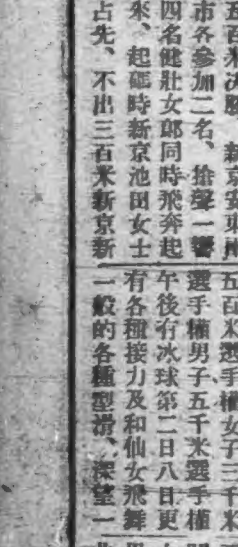 五百米決勝、新京安東兩
市各參加二名、搶聲一響
四名健壯女郎同時飛奔起
來、起碼時新京池田女士
占先、不出三百米新京新
五百米選手權女子三千米
選手權男子五千米選手權
午後有冰球第二日八日更
有各種接力及和仙女飛舞
一般的各種型滑、深望一